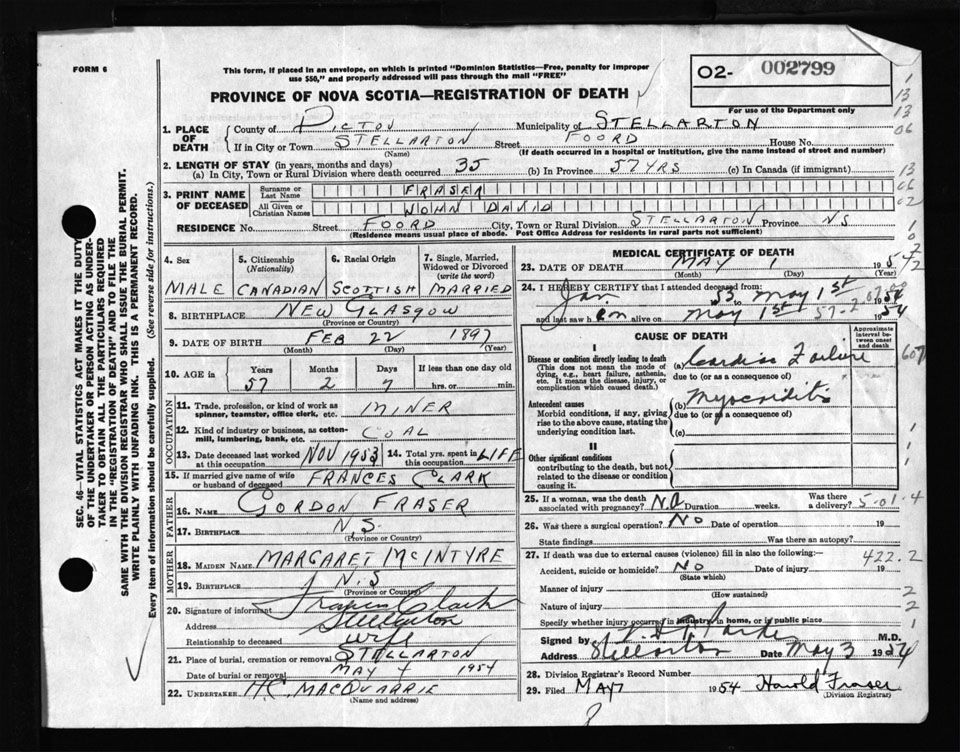 FORM 6
This form, if placed in an envelope, on which is printed "Dominion Statistics—Free, penalty for improper
use $50," and properly addressed will pass through the mail "FREE"
PROVINCE OF NOVA SCOTIA—REGISTRATION OF DEATH
02- 002799
For use of the Department only
1. PLACE OF DEATH
County of PICTOU Municipality of STELLARTON
If in City or Town STELLARTON Street FOORD House No.
(Name) (If death occurred in a hospital or institution, give the name instead of street and number)
2. LENGTH OF STAY (in years, months and days)
(a) In City, Town or Rural Division where death occurred 35 (b) In Province 57 YRS (c) In Canada (if immigrant)
3. PRINT NAME OF DECEASED
Surname or Last Name FRASER
All Given or Christian Names JOHN DAVID
RESIDENCE No. Street FOORD City, Town or Rural Division STELLARTON Province NS
(Residence means usual place of abode. Post Office Address for residents in rural parts not sufficient)
4. Sex MALE
5. Citizenship (Nationality) CANADIAN
6. Racial Origin SCOTTISH
7. Single, Married, Widowed or Divorced (write the word) MARRIED
8. BIRTHPLACE NEW GLASGOW
(Province or Country)
9. DATE OF BIRTH FEB 22 1897
(Month) (Day) (Year)
10. AGE in Years 57 Months 2 Days 7 If less than one day old
hrs. or min.
OCCUPATION
11. Trade, profession, or kind of work as spinner, teamster, office clerk, etc. MINER
12. Kind of industry or business, as cotton-mill, lumbering, bank, etc. COAL
13. Date deceased last worked at this occupation NOV 1953 14. Total yrs. spent in this occupation LIFE
15. If married give name of wife or husband of deceased FRANCES CLARK
FATHER
16. Name GORDON FRASER
17. Birthplace N.S.
(Province or Country)
MOTHER
18. MAIDEN NAME MARGARET McINTYRE
19. Birthplace N.S
(Province or Country)
20. Signature of informant Frances Clark
Address Stellarton
Relationship to deceased wife
21. Place of burial, cremation or removal STELLARTON
Date of burial or removal MAY 4 1954
22. UNDERTAKER H.C. MACQUARRIE
(Name and address)
MEDICAL CERTIFICATE OF DEATH
23. DATE OF DEATH MAY 1 1954
(Month) (Day) (Year)
24. I HEREBY CERTIFY that I attended deceased from:
Jan. 53 to May 1st 1954
and last saw him alive on May 1st 1954
CAUSE OF DEATH
Approximate interval between onset and death
I
Disease or condition directly leading to death
(This does not mean the mode of dying, e.g., heart failure, asthenia, etc. It means the disease, injury, or complication which caused death.)
(a) Cardiac Failure
due to (or as a consequence of)
Antecedent causes
Morbid conditions, if any, giving rise to the above cause, stating the underlying condition last.
(b) Myocarditis
due to (or as a consequence of)
(c)
II
Other significant conditions
contributing to the death, but not related to the disease or condition causing it.
25. If a woman, was the death associated with pregnancy? N.A Duration weeks. Was there a delivery?
5-01-4
26. Was there a surgical operation? NO Date of operation 19
State findings Was there an autopsy?
27. If death was due to external causes (violence) fill in also the following:—
422.2
Accident, suicide or homicide? NO Date of injury 19
(State which)
Manner of injury
(How sustained)
Nature of injury
Specify whether injury occurred in industry, in home, or in public place
Signed by M.D.
Address Stellarton Date May 3 1954
28. Division Registrar's Record Number
29. Filed MAY 1954 Harold Fraser
(Division Registrar)
SEC. 46—VITAL STATISTICS ACT MAKES IT THE DUTY
OF THE UNDERTAKER OR PERSON ACTING AS UNDER-
TAKER TO OBTAIN ALL THE PARTICULARS REQUIRED
IN THE "REGISTRATION OF DEATH" AND TO FILE THE
SAME WITH THE DIVISION REGISTRAR WHO SHALL ISSUE THE BURIAL PERMIT.
WRITE PLAINLY WITH UNFADING INK. THIS IS A PERMANENT RECORD.
Every item of information should be carefully supplied. (See reverse side for instructions.)